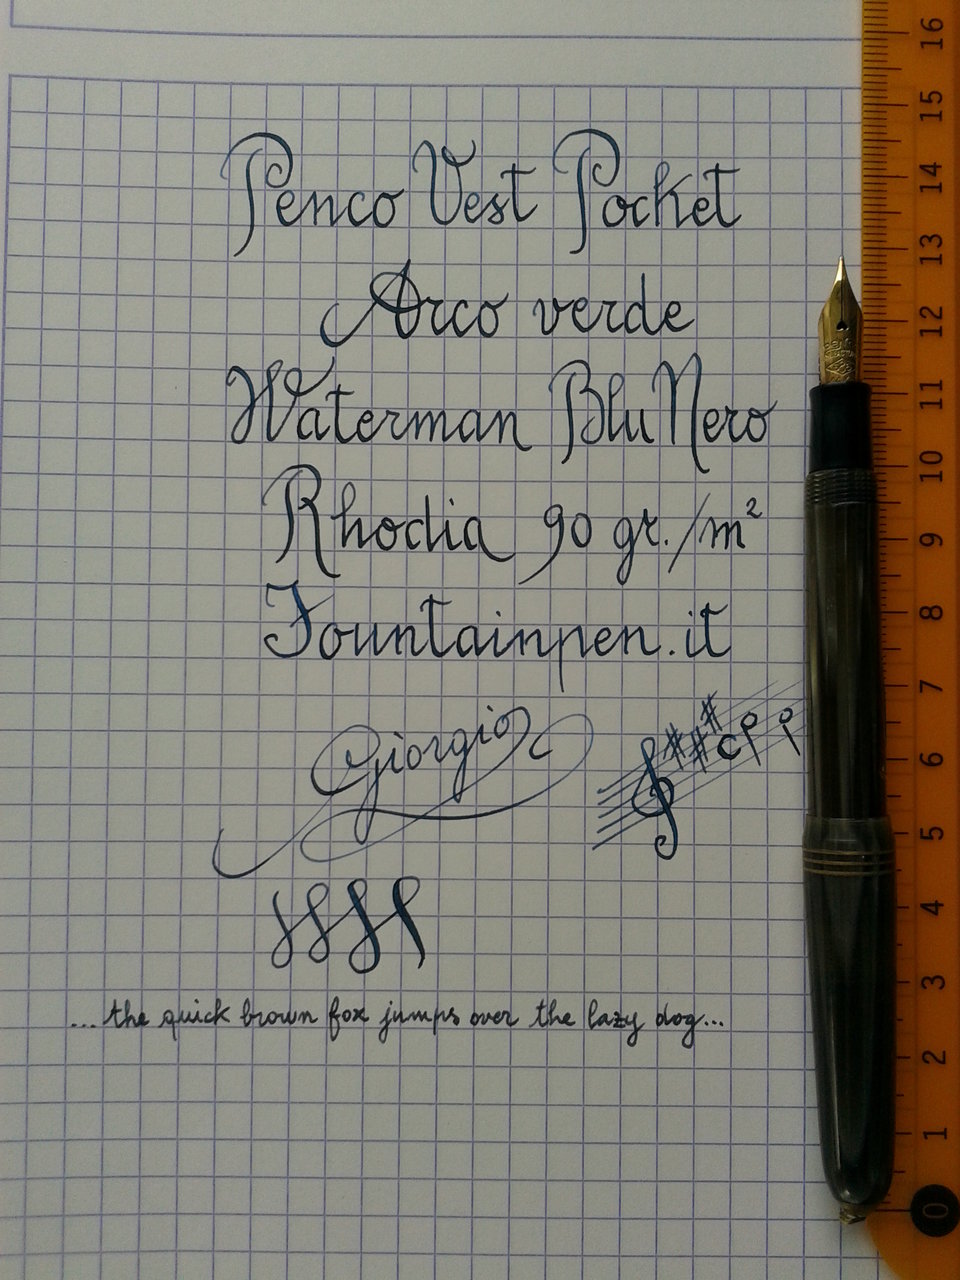 Penco Vest Pocket
Arco verde
Waterman Blu Nero
Rhodia 90 gr./m²
Fountainpen.it
Giorgio
...the quick brown fox jumps over the lazy dog...
16
15
14
13
12
11
10
9
8
7
6
5
4
3
2
1
0